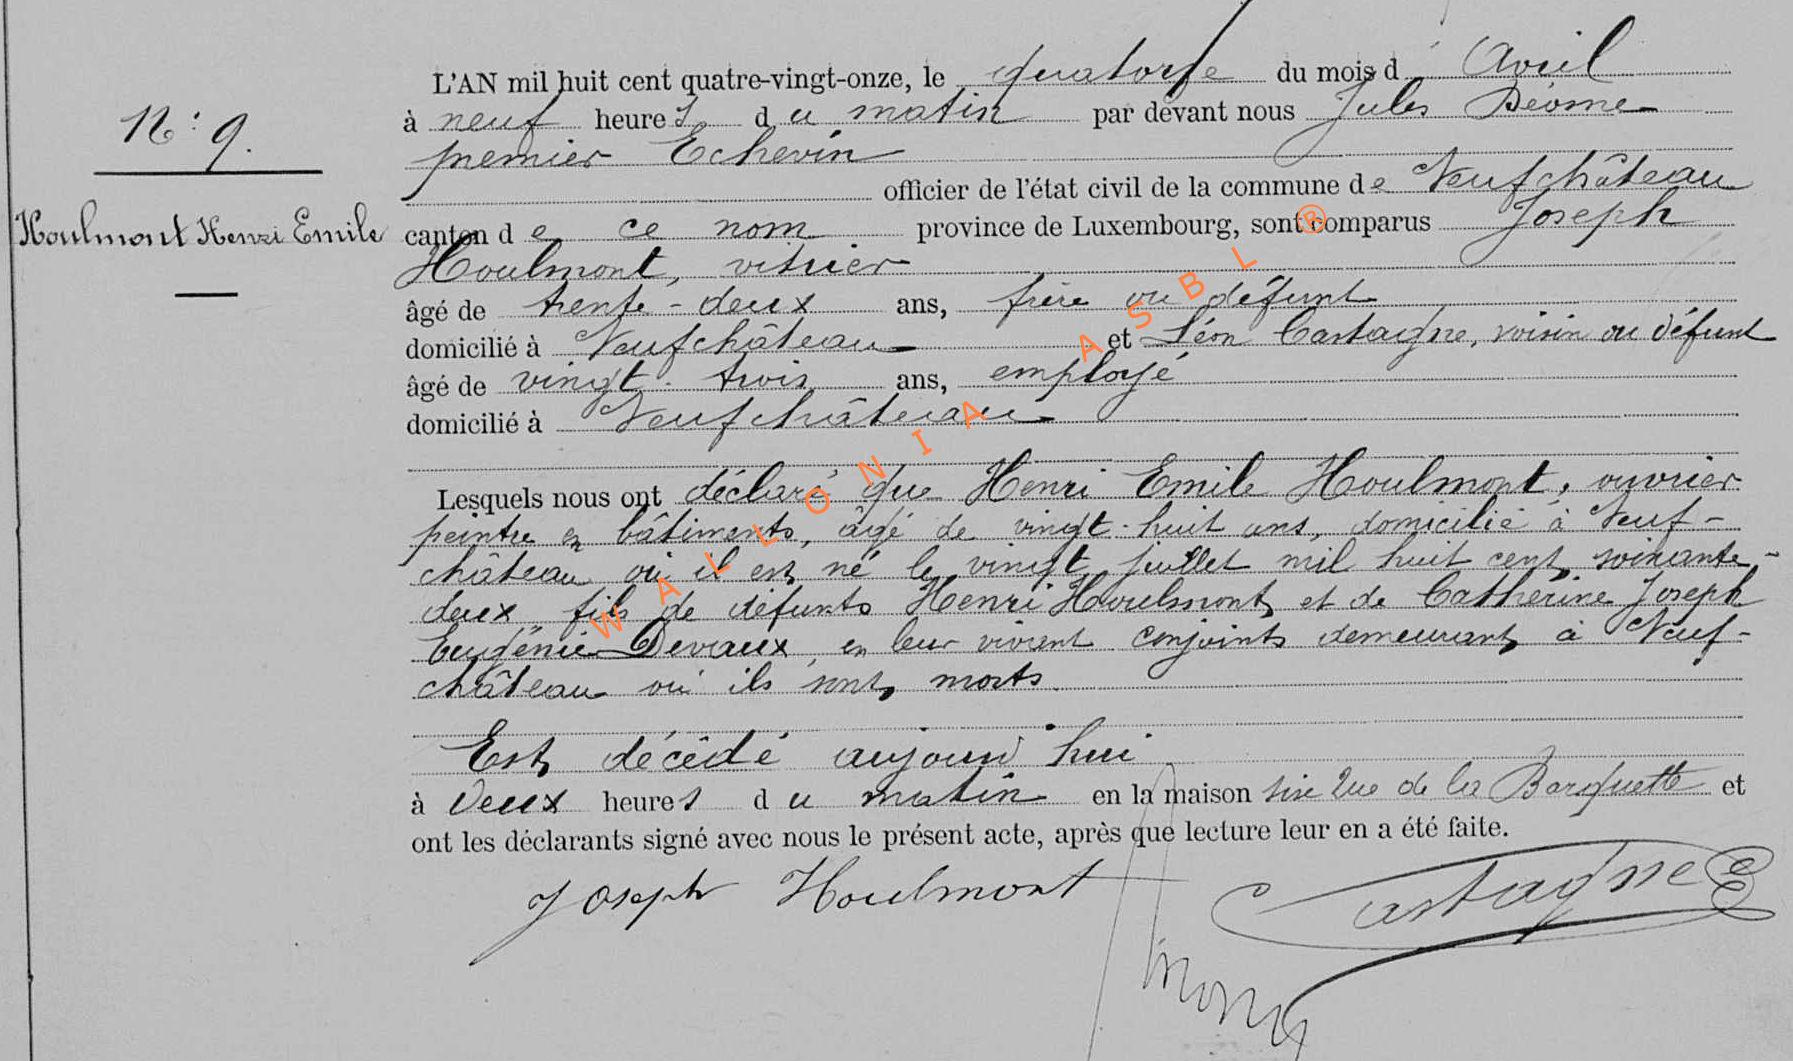 L'AN mil huit cent quatre-vingt-onze, le quatorze du mois d'Avril
N: 9.
à neuf heures du matin par devant nous Jules Déome
premier Echevin
officier de l'état civil de la commune de Neufchâteau
Houlmont Henri Emile
canton de ce nom province de Luxembourg, sont comparus Joseph
Houlmont, vitrier
âgé de trente-deux ans, frère du défunt
domicilié à Neufchâteau et Léon Castaigne, voisin du défunt
âgé de vingt-trois ans, employé
domicilié à Neufchâteau
Lesquels nous ont déclaré que Henri Emile Houlmont, ouvrier
peintre en bâtiments, âgé de vingt-huit ans, domicilié à Neuf-
château où il est né le vingt juillet mil huit cent soixante-
deux fils de défunts Henri Houlmont et de Cathérine Joseph
Eugénie Devaux, en leur vivant conjoints demeurant à Neuf-
château où ils sont morts
Est décédé aujourd'hui
à Deux heures du matin en la maison sise Rue de la Barquette et
ont les déclarants signé avec nous le présent acte, après que lecture leur en a été faite.
Joseph Houlmont Castagne
WALLONIA ASBL ®